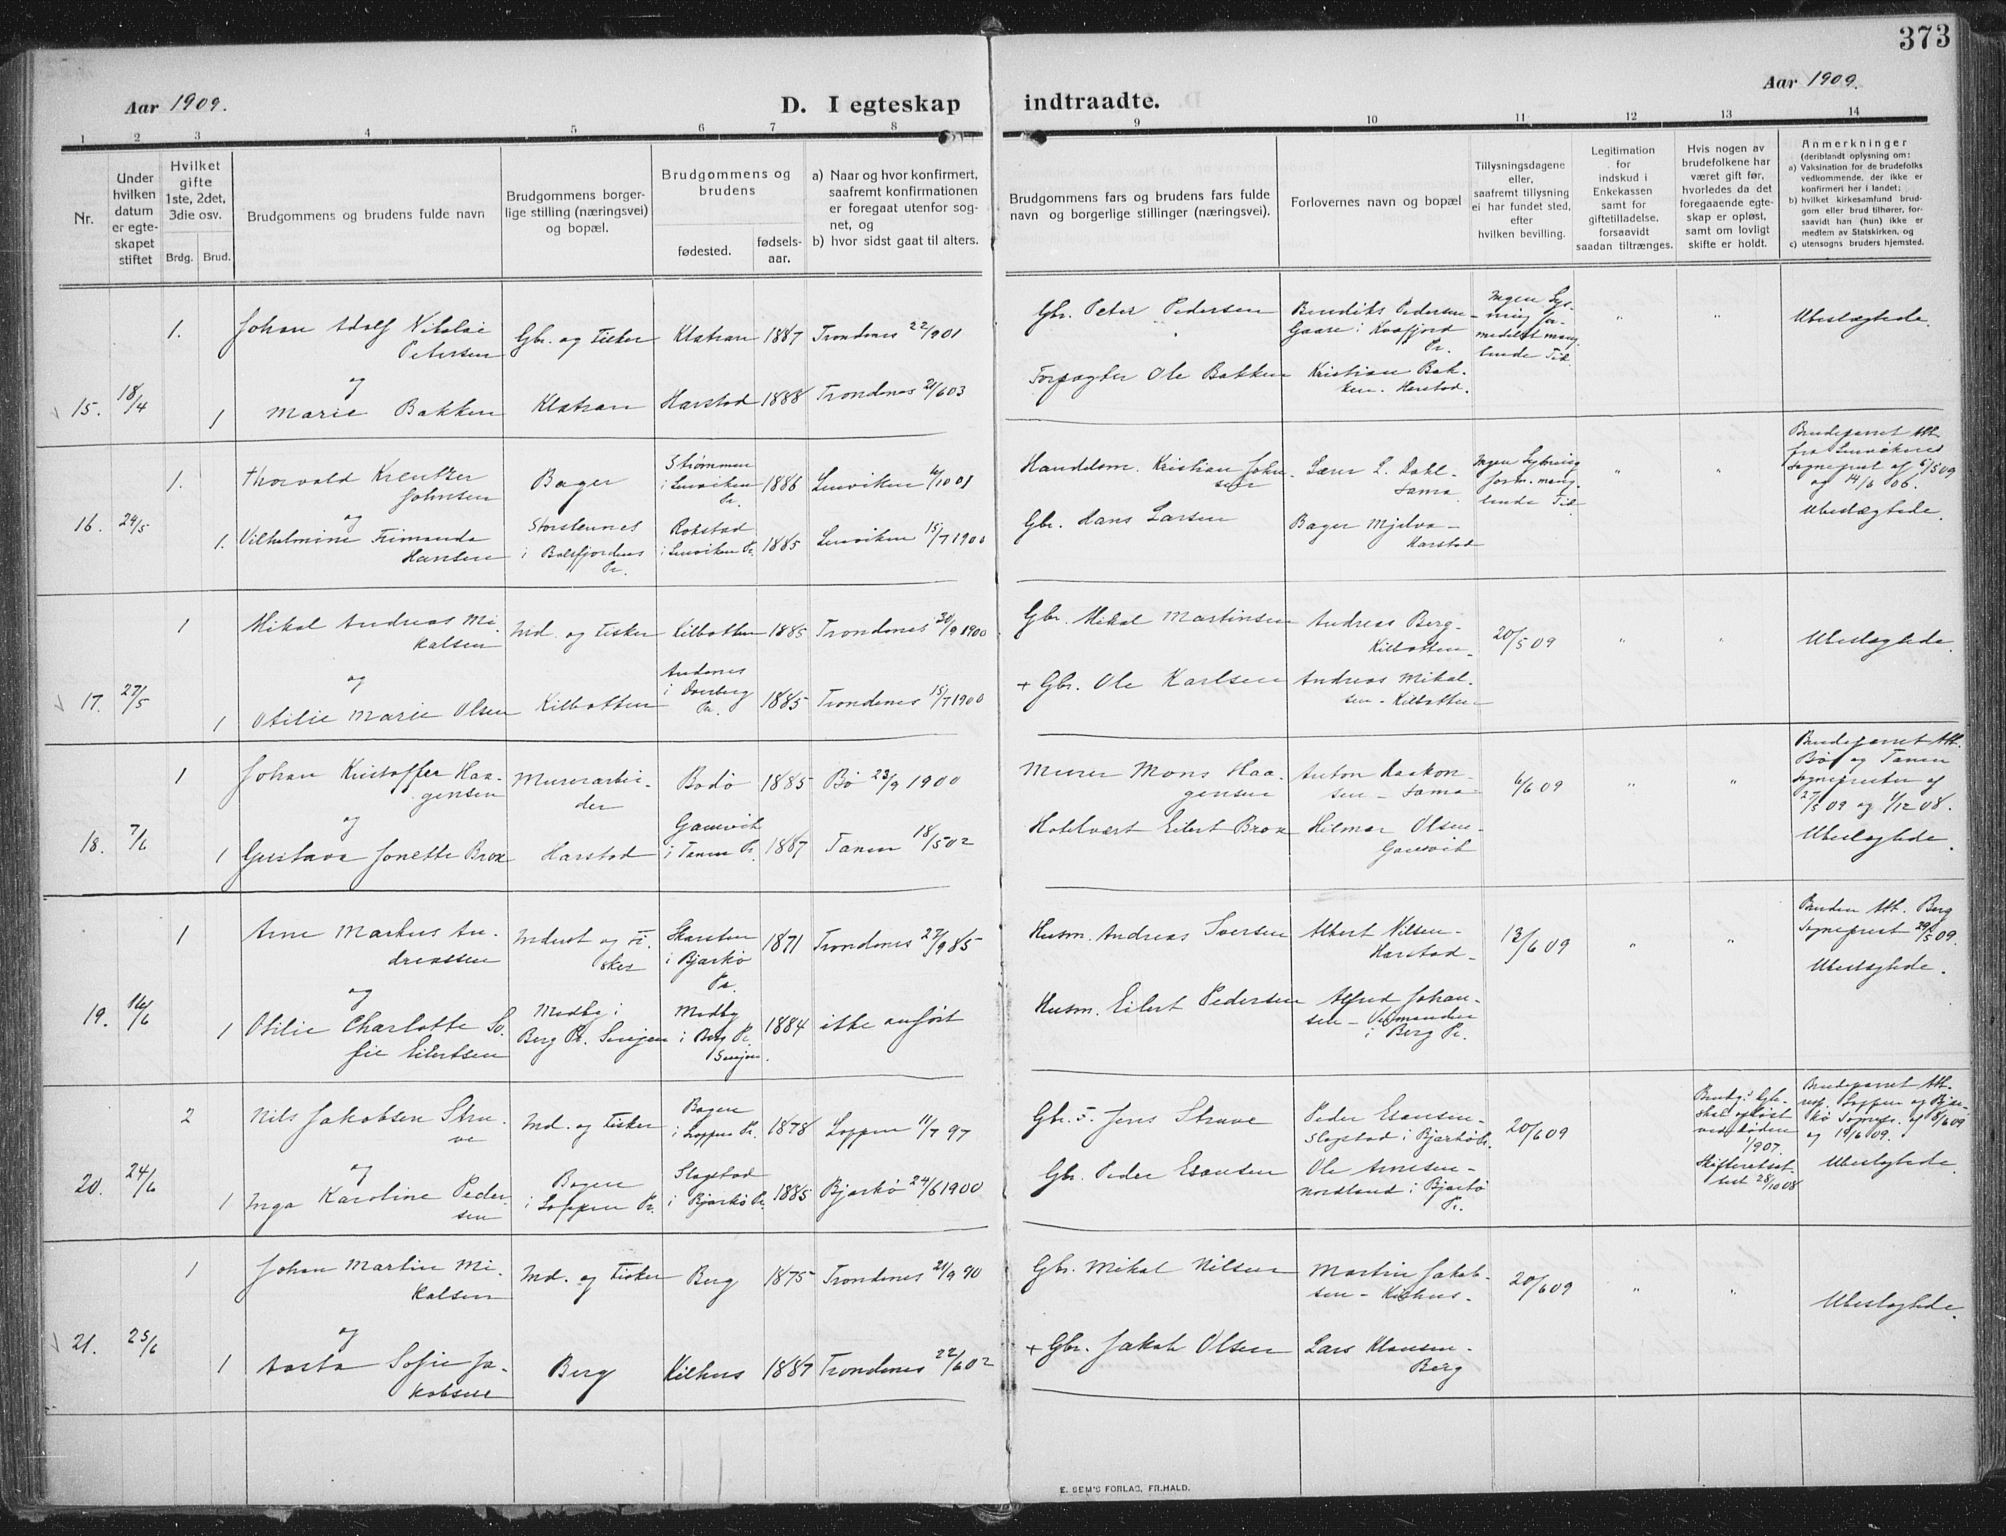 373
Aar 1909.
D. I egteskap indtraadte.
Aar 1909.
1 2 3 4 5 6 7 8 9 10 11 12 13 14
Nr.
Under hvilken datum er egteskapet stiftet
Hvilket gifte 1ste, 2det, 3die osv.
Brdg. Brud.
Brudgommens og brudens fulde navn
Brudgommens borgerlige stilling (næringsvei) og bopæl.
Brudgommens og brudens
fødested.
fødselsaar.
a) Naar og hvor konfirmert, saafremt konfirmationen er foregaat utenfor sognet, og
b) hvor sidst gaat til alters.
Brudgommens fars og brudens fars fulde navn og borgerlige stillinger (næringsvei).
Forlovernes navn og bopæl
Tillysningsdagene eller, saafremt tillysning ei har fundet sted, efter hvilken bevilling.
Legitimation for indskud i Enkekassen samt for giftetilladelse, forsaavidt saadan tiltrænges.
Hvis nogen av brudefolkene har været gift før, hvorledes da det foregaaende egteskap er opløst, samt om lovligt skifte er holdt.
Anmerkninger
(deriblandt oplysning om:
a) Vaksination for de brudefolks vedkommende, der ikke er konfirmert her i landet;
b) hvilket kirkesamfund brudgom eller brud tilhører, forsaavidt han (hun) ikke er medlem av Statskirken, og
c) utensogns bruders hjemsted.
15. 18/4
1. Johan Adolf Nikolai Petersen Gbr. og Fisker Klatran 1887 Trondenes 22/9 01 Gbr. Peter Pedersen Bendiks Pedersen - Gaare i Kvæfjord Pr. Ingen Lysning formedelst manglende Tid " " Ubeslægtede.
og
1 Marie Bakken Klatran Harstad 1888 Trondenes 21/6 03 Forpagter Ole Bakken Kristian Bakken. Harstad.
16. 24/5
1. Thorvald Kreutzer Johnsen Bager Strømmen i Lenviken Pr. 1886 Lenviken 6/10 01 Handelsm. Kristian Johnsen Lærer L. Dahl - Sama. Ingen Lysning form. manglende Tid " " Brudeparret Att. fra Lenvikens Sogneprest af 6/5 09 og 14/6 06. Ubeslægtede.
og
1. Vilhelmine Frimanda Hansen Storstennes i Balsfjordens Pr. Rokstad i Lenviken Pr. 1885 Lenviken 15/7 1900 Gbr. Hans Larsen Bager Mjelva - Harstad
17. 27/5
1 Mikal Andreas Mikalsen Ind. og Fisker Kilbotten 1885 Trondenes 30/9 1900 Gbr. Mikal Martinsen Andreas Berg - Kilbotten 20/5 09 " " Ubeslægtede.
og
1 Otilie Marie Olsen Kilbotten Andenes i Dverberg Pr. 1885 Trondenes 15/7 1900 + Gbr. Ole Karlsen Andreas Mikalsen - Kilbotten
18. 7/6
1 Johan Kristoffer Haagensen Murerarbeider Bodø 1885 Bø 23/9 1900 Murer Mons Haagensen Anton Haakonsen - Sama 6/6 09 " " Brudeparret Att. Bø og Tanen Sogneprester af 27/5 09 og 1/12 08. Ubeslægtede.
og
1 Gustava Jonette Brox Harstad Gamvik i Tanen Pr. 1887 Tanen 18/5 02 Hotelvært Eilert Brox Hilmar Olsen - Gamvik
19. 16/6
1 Arne Markus Andreassen Inderst og Fisker Skarstein i Bjarkø Pr. 1871 Trondenes 27/9 85 Husm. Andreas Iversen Albert Nilsen - Harstad 13/6 09 " " Bruden Att. Berg Sogneprest 29/5 09. Ubeslægtede.
og
1 Otilie Charlotte Sofie Eilertsen Medby i Berg Pr. Senjen Medby i Berg Pr. Senjen. 1884 ikke anført Husm. Eilert Pedersen Alfred Johansen - i Berg Pr.
20. 24/6
2 Nils Jakobsen Struve Ind. og Fisker Bogen i Loppen Pr. 1878 Loppen 11/7 97 Gbr. F. Jens Struve Peder Esansen - Slogstad i Bjarkø Pr. 20/6 09 Brudg.s Egteskab opløst ved Døden 1/9 07. Skifteretsattest 28/10 08 Brudeparret Att. resp. Loppen og Bjarkø Sognepr. af 8/6 09 og 19/6 09. Ubeslægtede.
og
1 Inga Karoline Pedersen Bogen i Loppen Pr. Slogstad i Bjarkø Pr. 1885 Bjarkø 24/6 1900 Gbr. Peder Esansen Ole Arnesen - Nordland i Bjarkø Pr.
21. 25/6
1 Johan Martin Mikalsen Ind. og Fisker Berg 1875 Trondenes 21/9 90 Gbr. Mikal Nilsen Martin Jakobsen - Kilhus. 20/6 09 " " Ubeslægtede.
og
1 Aasta Sofie Jakobsen Berg Kilhus 1887 Trondenes 22/6 02 + Gbr. Jakob Olsen Lars Klausen - Berg
E. SEM'S FORLAG, FR.HALD.